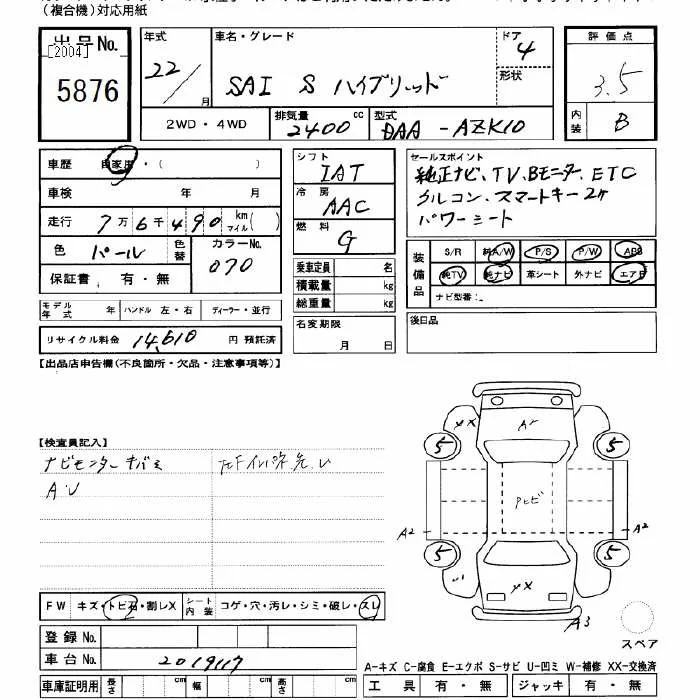 (複合機)対応用紙
出品No. [2004] 5876
年式 22/ 月
車名・グレード SAI S ハイブリッド
ドア 4
形状
2WD・4WD
排気量 2400 cc
型式 DAA-AZK10
評価点 3.5
内装 B
車歴 自家用・( )
車検 年 月
走行 7万6千490 km マイル( )
色 パール 色替
カラーNo. 070
保証書 有・無
シフト IAT
冷房 AAC
燃料 G
乗車定員 名
積載量 kg
総重量 kg
名変期限 月 日
セールスポイント
純正ナビ、TV、Bモニター、ETC
クルコン、スマートキー2ヶ
パワーシート
装備品 S/R 純A/W P/S P/W ABS
純TV 純ナビ 革シート 外ナビ エアB
ナビ型番:
後日品
モデル年式 年 ハンドル 左・右 ディーラー・並行
リサイクル料金 14,610 円 預託済
【出品店申告欄(不良箇所・欠品・注意事項等)】
【検査員記入】
ナビモニターキバミ
A.U
XX A2
5 5
A2 A2
5 5
XX
A3
スペア
FW キズ・トビ石・割レX
シート内装 コゲ・穴・汚レ・シミ・破レ・スレ
登録No.
車台No. 2019117
車庫証明用 長さ cm 幅 cm 高さ cm
A-キズ C-腐食 E-エクボ S-サビ U-凹ミ W-補修 XX-交換済
工具 有・無 ジャッキ 有・無